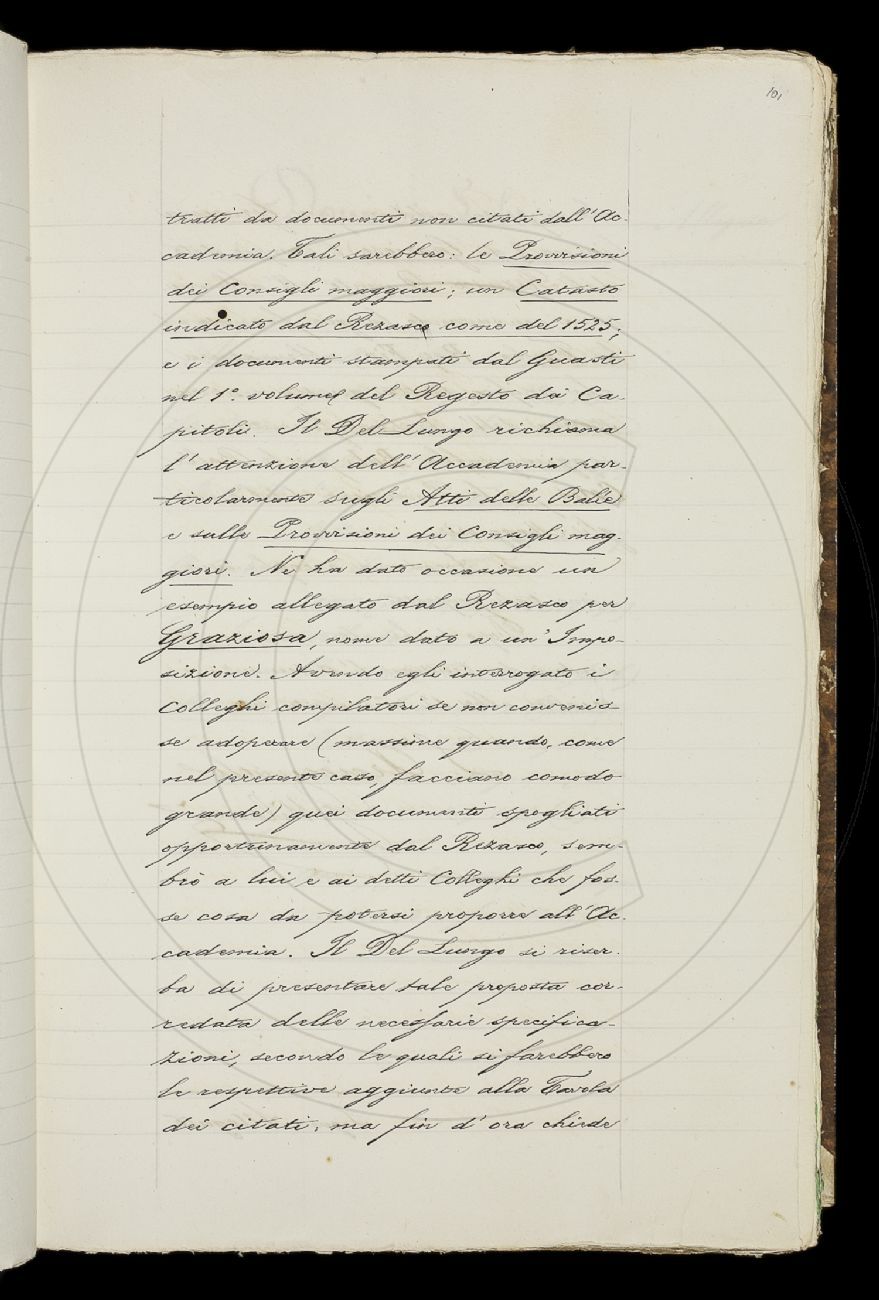 101
tratti da documenti non citati dall'Ac-
cademia. Tali sarebbero: le Provvisioni
dei Consigli maggiori; un Catasto
indicato dal Rezasco come del 1525;
e i documenti stampati dal Guasti
nel 1º. volume del Regesto dei Ca-
pitoli. Il Del Lungo richiama
l'attenzione dell'Accademia par-
ticolarmente sugli Atti delle Balìe
e sulle Provvisioni dei Consigli mag-
giori. Ne ha dato occasione un
esempio allegato dal Rezasco per
Graziosa, nome dato a un'Impo-
sizione. Avendo egli interrogato i
Colleghi compilatori se non convenis-
se adoperare (massime quando, come
nel presente caso, facciano comodo
grande) quei documenti spogliati
opportunamente dal Rezasco, sem-
brò a lui e ai detti Colleghi che fos-
se cosa da potersi proporre all'Ac-
cademia. Il Del Lungo si riser-
ba di presentare tale proposta cor-
redata delle necessarie specifica-
zioni, secondo le quali si farebbero
le respettive aggiunte alla Tavola
dei citati; ma fin d'ora chiede